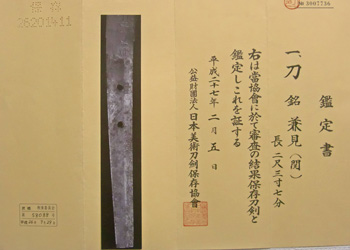 保存
26201411
No 3007736
鑑定書
一、刀 銘 兼見(関)
長 二尺三寸七分
右は當協會に於て審査の結果保存刀剣と
鑑定しこれを証する
平成二十七年二月五日
公益財団法人 日本美術刀剣保存協會